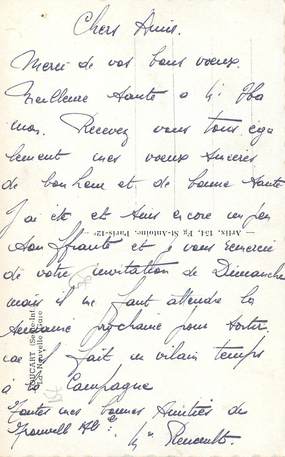 Chers Amis.
Merci de vos bons voeux.
Meilleure Sante a Mr
mon. Recevez vous tous éga
lement mes voeux sincères
de bonheur et de bonne Sante
J'ai été et suis encore un peu
souffrante et je vous remercie
de votre invitation de Dimanche
mais il me faut attendre la
semaine prochaine pour sortir
car il fait un vilain temps
à la Campagne
Toutes mes bonnes Amitiés de
Nouvelle
Mme
— Artix, 151, Fg St-Antoine, Paris-12e
DOUCART (Seine-Inf
La Nouvelle Gare